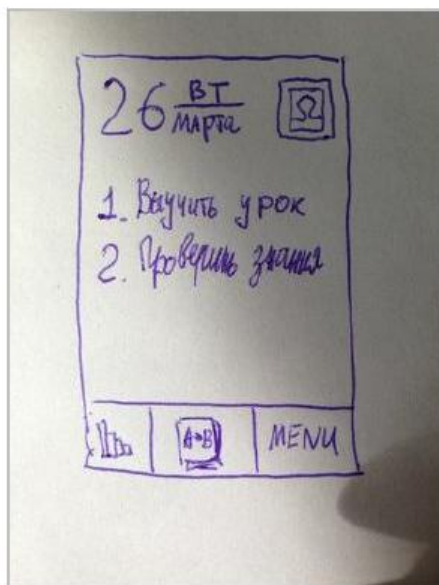 26 ВТ
МАРТА
Ω
1. Выучить урок
2. Проверить знания
A→B
MENU